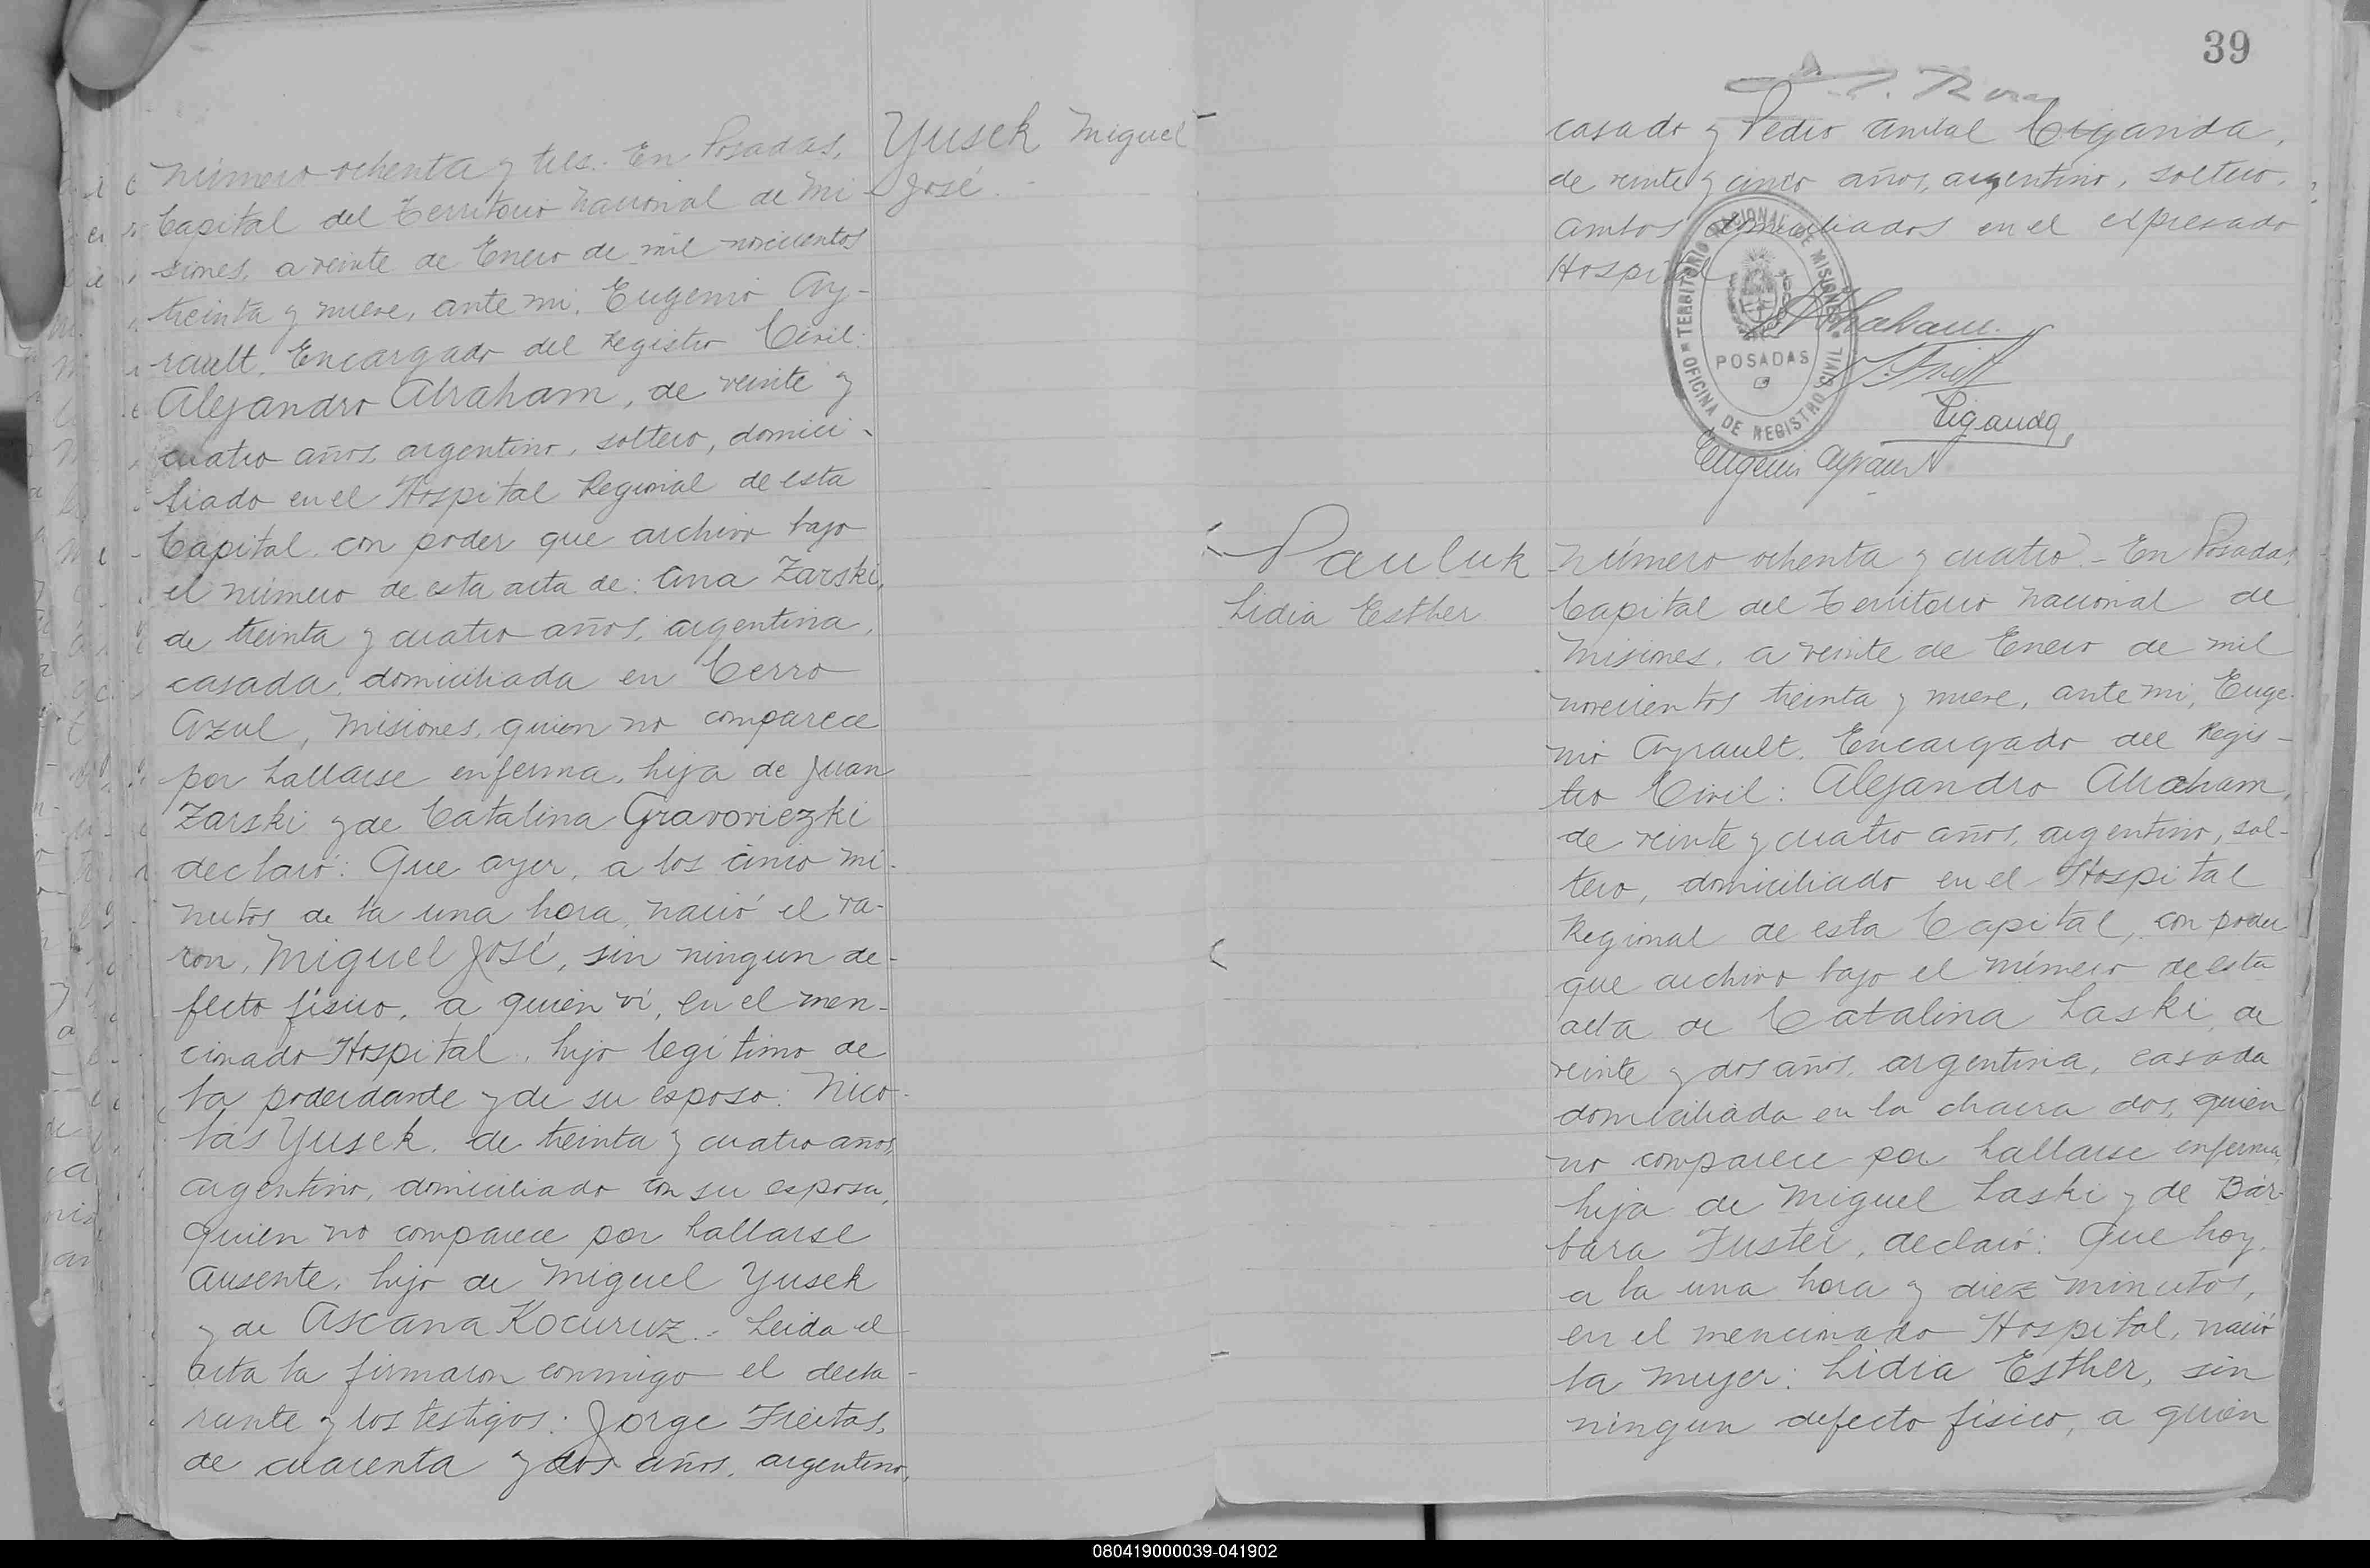 Yusek Miguel
José
Número ochenta y tres.- En Posadas,
Capital del Territorio Nacional de Mi-
siones, a veinte de Enero de mil novecientos
treinta y nueve, ante mi, Eugenio Ay-
rault, Encargado del Registro Civil:
Alejandro Abraham, de veinte y
cuatro años, argentino, soltero, domici-
liado en el Hospital Regional de esta
Capital, con poder que archivo bajo
el número de esta acta de: Ana Zarski,
de treinta y cuatro años, argentina,
casada, domiciliada en Cerro
Azul, Misiones, quien no comparece
por hallarse enferma, hija de Juan
Zarski y de Catalina Gravoviezki
declaró: Que ayer, a los cinco mi-
nutos de la una hora, nació el va-
ron, Miguel José, sin ningun de-
fecto físico, a quien ví, en el men-
cionado Hospital, hijo legitimo de
la poderdante y de su esposo: Nico-
lás Yusek, de treinta y cuatro años,
argentino, domiciliado con su esposa,
quien no comparece por hallarse
ausente, hijo de Miguel Yusek
y de Ascana Kocuruz.- Leida el
acta la firmaron conmigo el decla-
rante y los testigos: Jorge Freitas,
de cuarenta y dos años, argentino,
39
casado y Pedro Anibal Ciganda,
de veinte y cinco años, argentino, soltero,
ambos domiciliados en el expresado
Hospital
TERRITORIO NACIONAL DE MISIONES
OFICINA DE REGISTRO CIVIL
POSADAS
A Abraham.
Ciganda,
Eugenio Ayrault
Pauluk
Lidia Esther
Número ochenta y cuatro.- En Posadas,
Capital del Territorio Nacional de
Misiones, a veinte de Enero de mil
novecientos treinta y nueve, ante mi, Euge-
nio Ayrault, Encargado del Regis-
tro Civil: Alejandro Abraham,
de veinte y cuatro años, argentino, sol-
tero, domiciliado en el Hospital
Regional de esta Capital, con poder
que archivo bajo el número de esta
acta de Catalina Laski, de
veinte y dos años, argentina, casada
domiciliada en la chacra dos, quien
no comparece por hallarse enferma,
hija de Miguel Laski y de Bár-
bara Fuster, declaró: Que hoy,
a la una hora y diez minutos,
en el mencionado Hospital, nació
la mujer: Lidia Esther, sin
ningun defecto físico, a quien
080419000039-041902